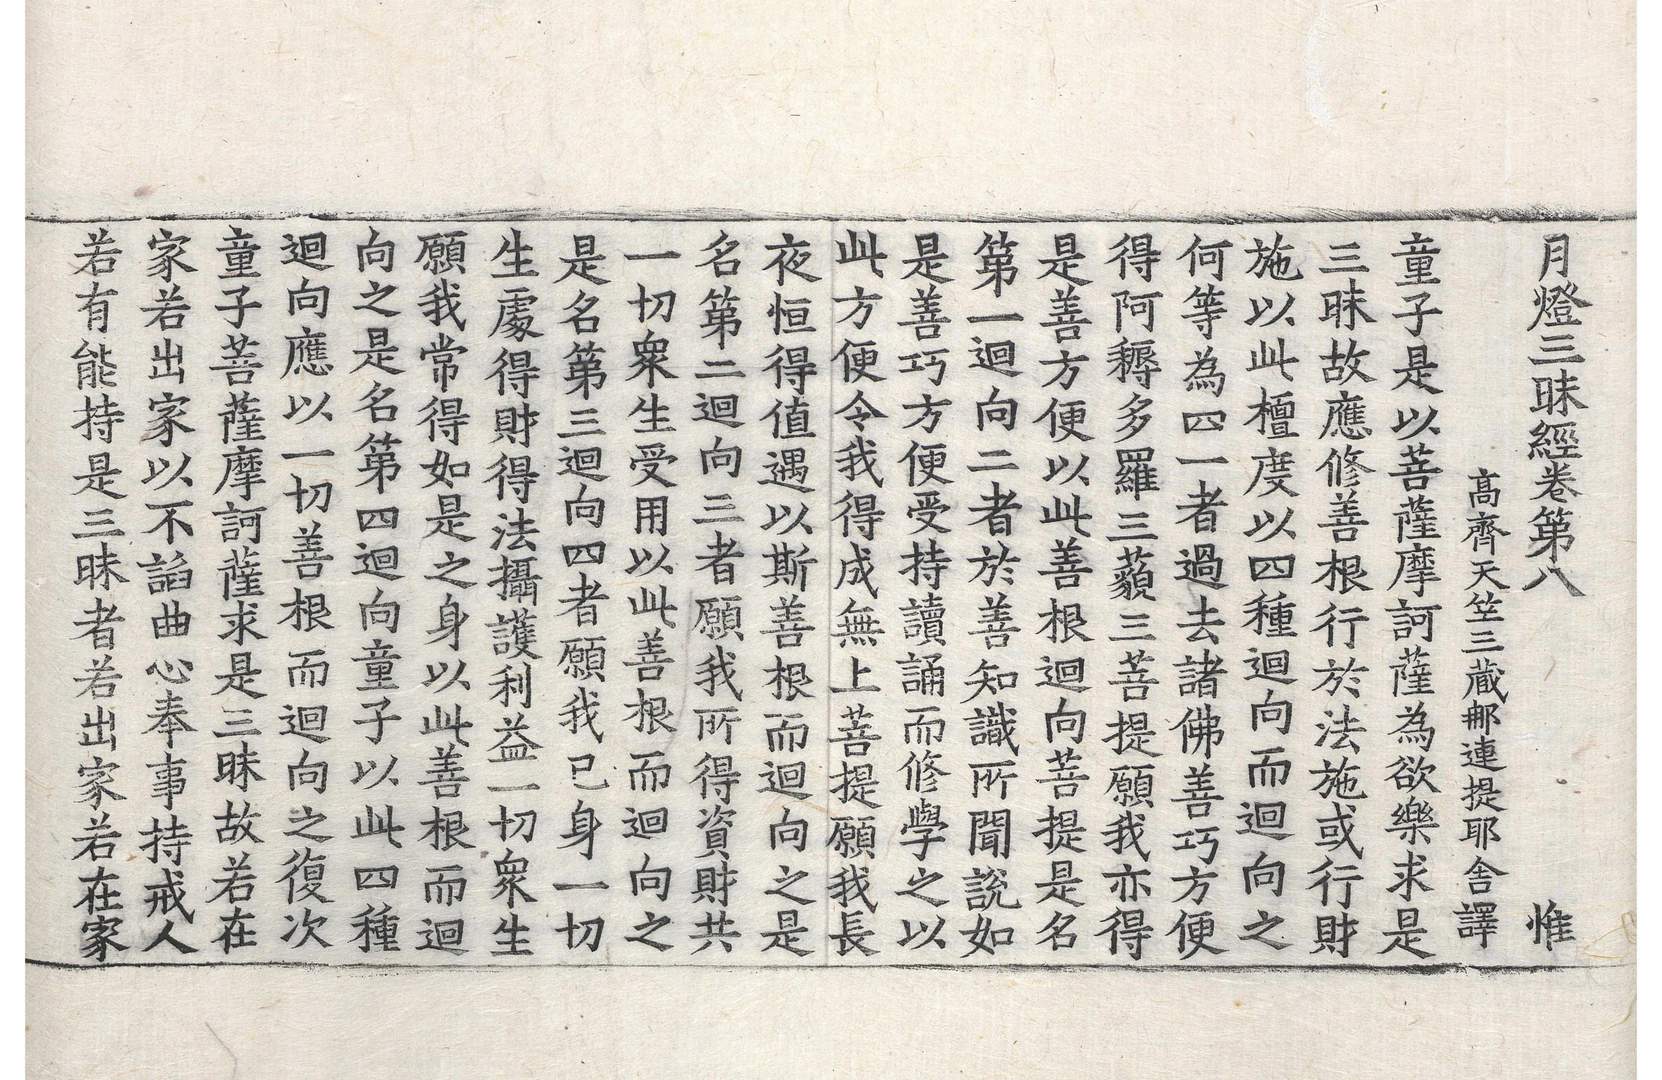 月燈三昧經卷第八 惟
高齊天竺三藏郍連提耶舍譯
童子是以菩薩摩訶薩為欲樂求是
三昧故應修善根行於法施或行財
施以此檀度以四種迴向而迴向之
何等為四一者過去諸佛善巧方便
得阿耨多羅三藐三菩提願我亦得
是善方便以此善根迴向菩提是名
第一迴向二者於善知識所聞說如
是善巧方便受持讀誦而修學之以
此方便令我得成無上菩提願我長
夜恒得值遇以斯善根而迴向之是
名第二迴向三者願我所得資財共
一切衆生受用以此善根而迴向之
是名第三迴向四者願我已身一切
生處得財得法攝護利益一切衆生
願我常得如是之身以此善根而迴
向之是名第四迴向童子以此四種
迴向應以一切善根而迴向之復次
童子菩薩摩訶薩求是三昧故若在
家若出家以不諂曲心奉事持戒人
若有能持是三昧者若出家若在家